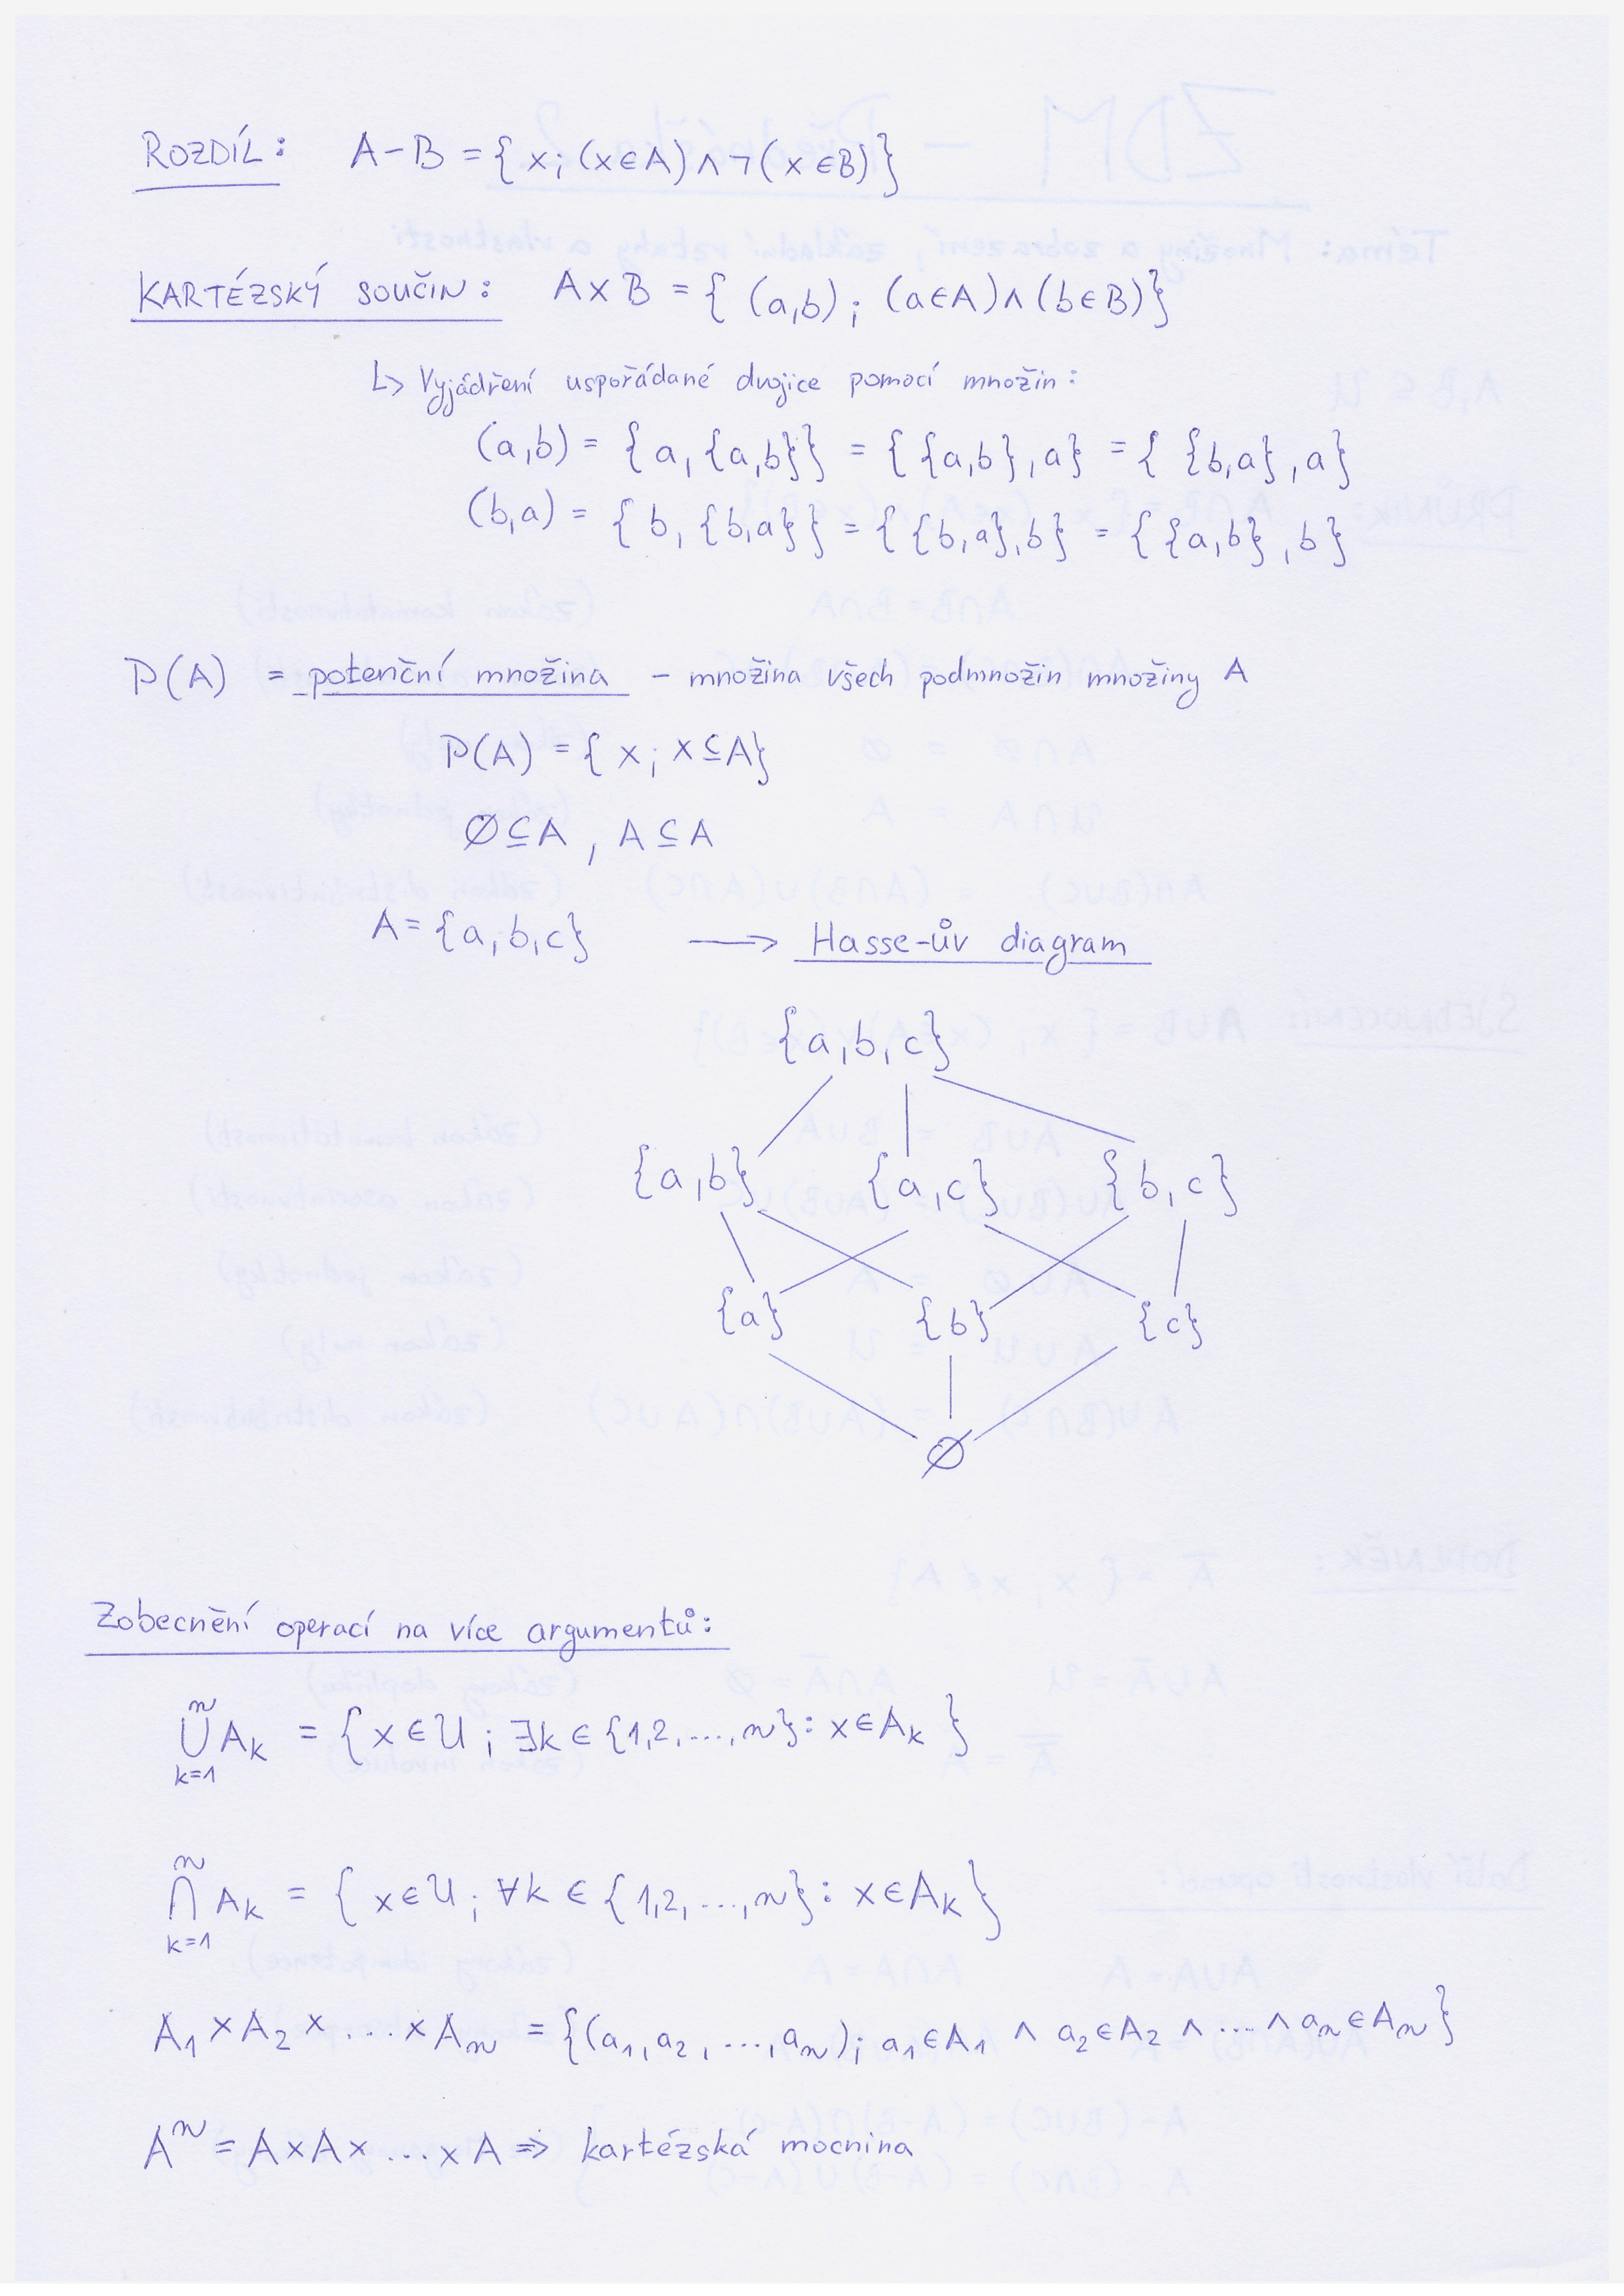 ROZDÍL: A-B = { x; (x∈A) ∧ ¬(x∈B)}
KARTÉZSKÝ SOUČIN: A×B = { (a,b); (a∈A)∧(b∈B)}
↳ Vyjádření uspořádané dvojice pomocí množin:
(a,b) = {a,{a,b}} = {{a,b},a} = { {b,a},a}
(b,a) = {b,{b,a}} = {{b,a},b} = {{a,b},b}
P(A) = potenční množina - množina všech podmnožin množiny A
P(A) = { x; x⊆A}
∅⊆A, A⊆A
A={a,b,c} → Hasse-ův diagram
{a,b,c}
{a,b} {a,c} {b,c}
{a} {b} {c}
∅
Zobecnění operací na více argumentů:
n
∪ A_k = { x∈U; ∃k∈{1,2,...,n}: x∈A_k }
k=1
n
∩ A_k = { x∈U; ∀k∈{1,2,...,n}: x∈A_k}
k=1
A₁×A₂×...×Aₙ = {(a₁,a₂,...,aₙ); a₁∈A₁ ∧ a₂∈A₂ ∧ ... ∧ aₙ∈Aₙ}
Aⁿ = A×A×...×A ⇒ kartézská mocnina